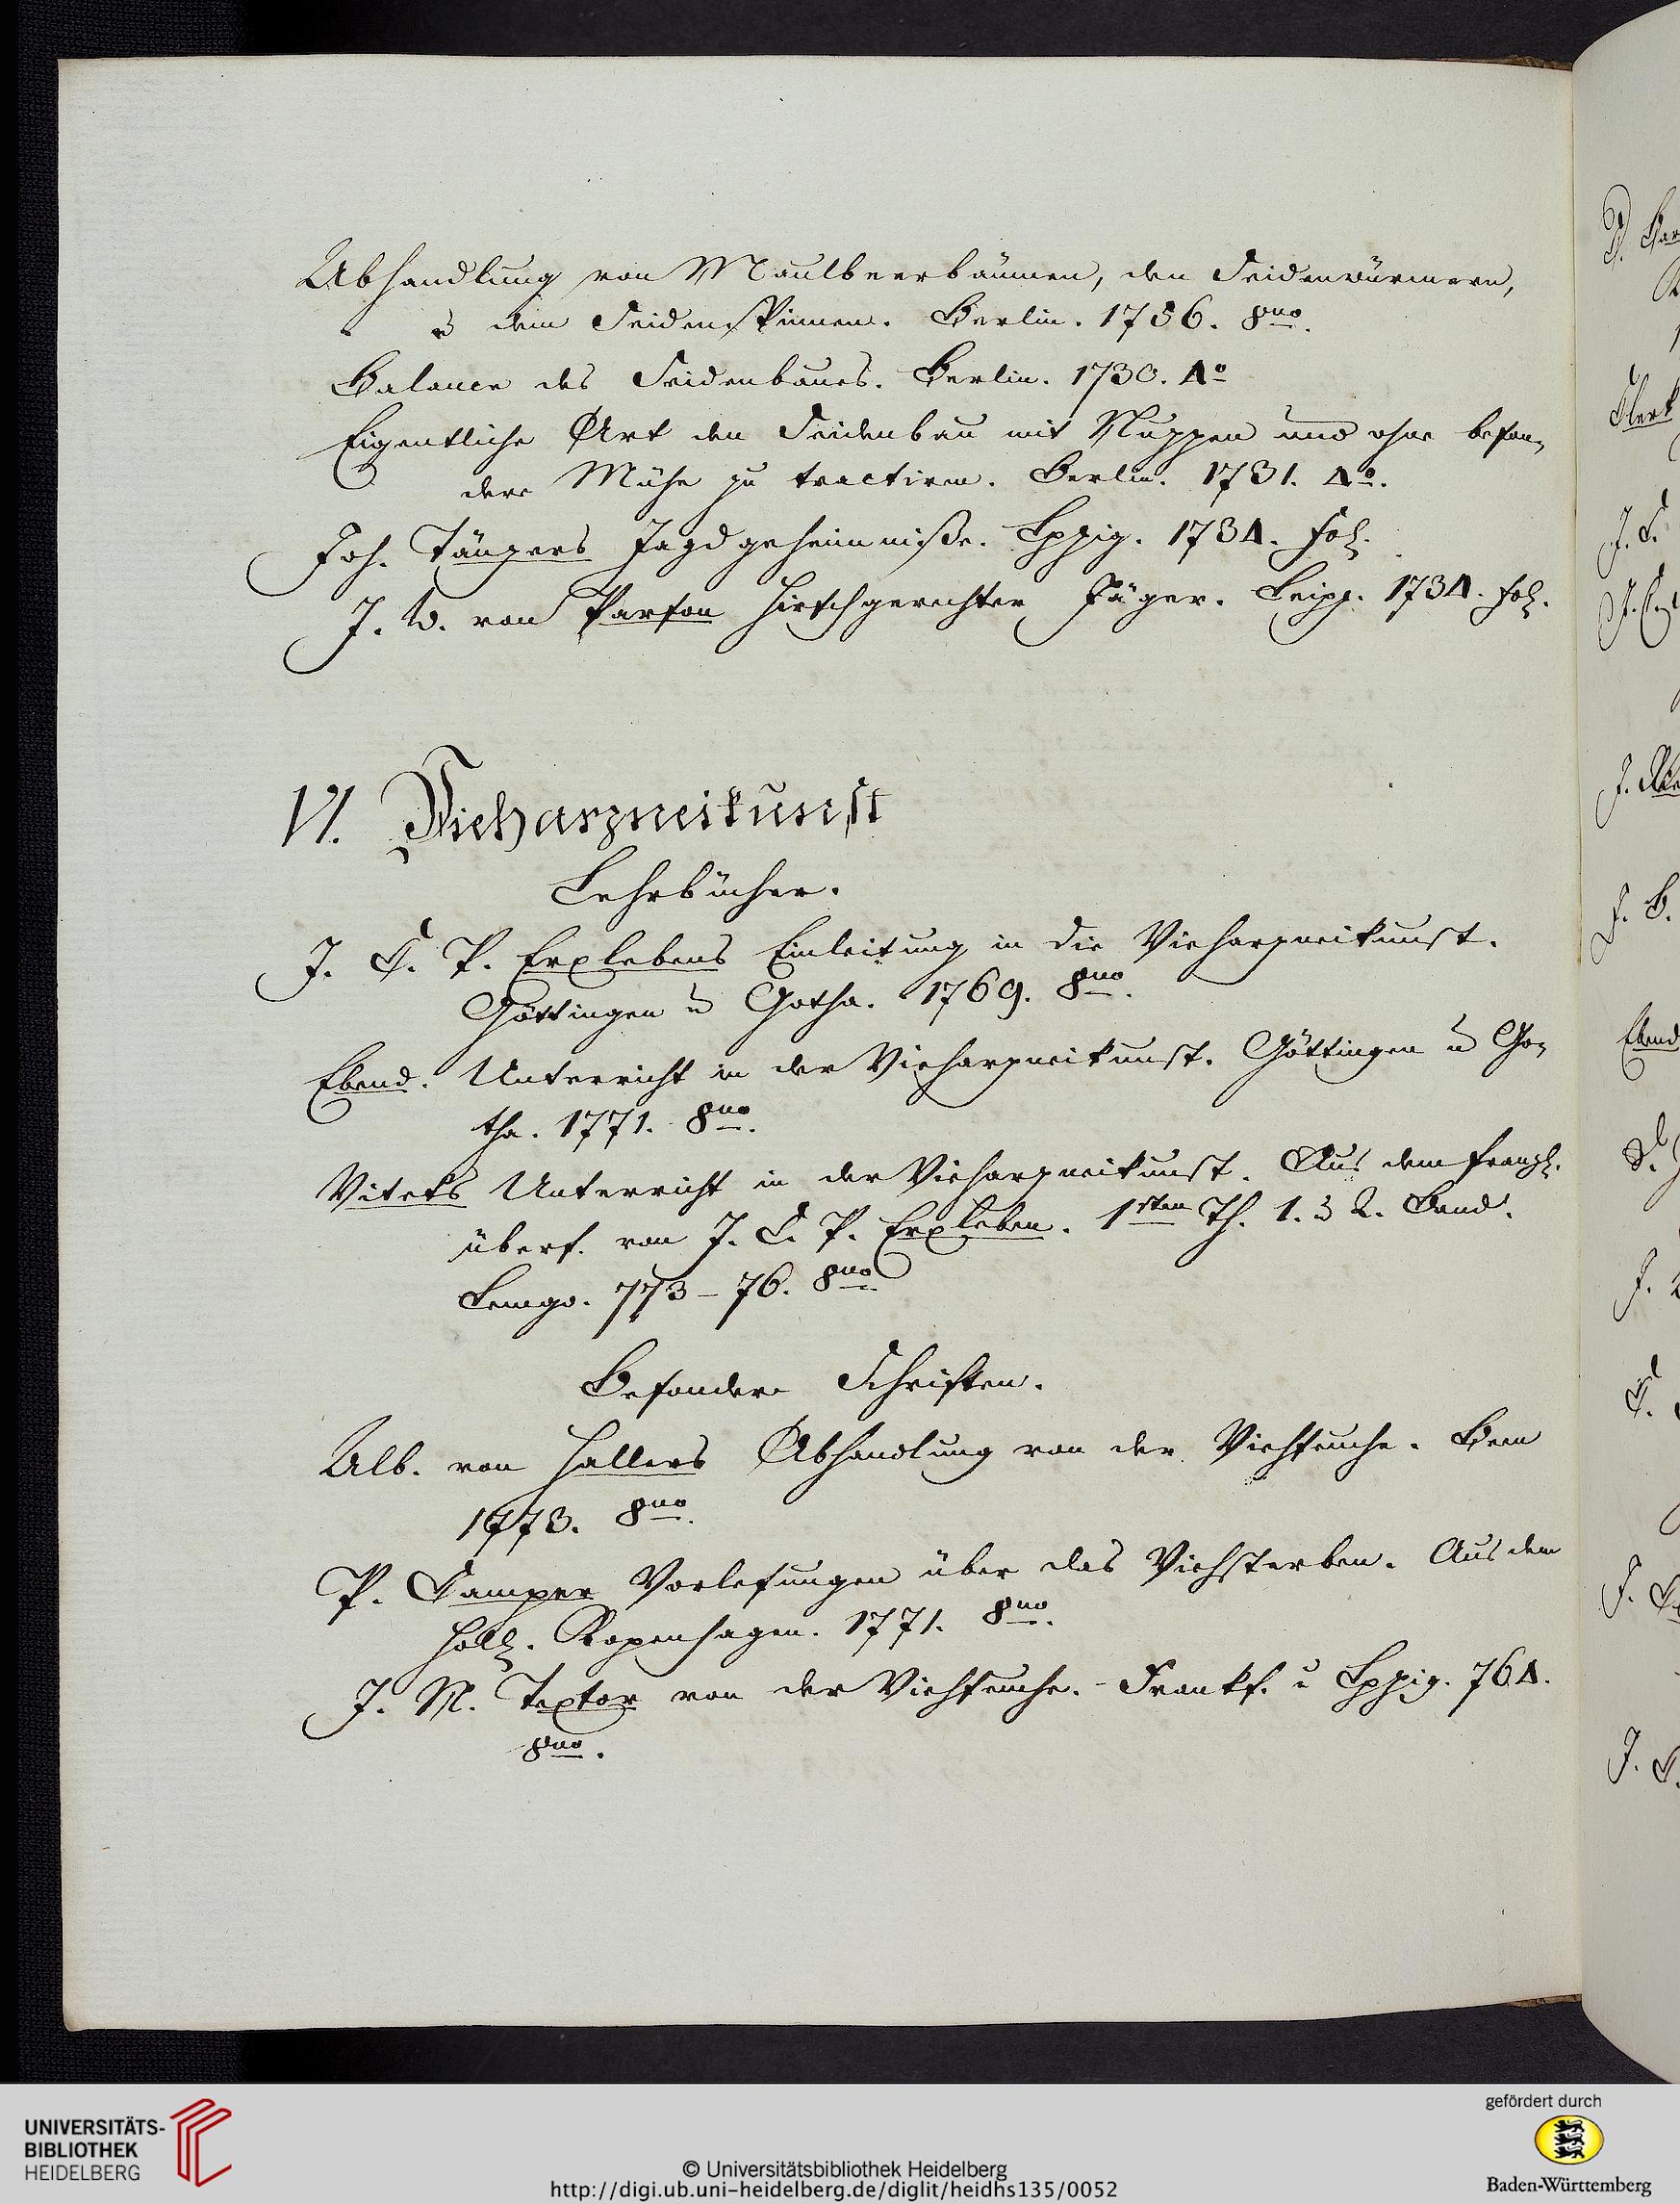 Abhandlung von Maulbeerbäumen, den Seidenwürmern,
u dem Seidenspinnen. Berlin. 1756. 8vo.
Balance des Seidenbaues. Berlin. 1730. 4o
Eigentliche Art den Seidenbau mit Nuzzen und ohne beson-
dere Mühe zu tractiren. Berlin. 1731. 4o.
Joh. Tänzers Jagdgeheimniße. Lpzig. 1734. fol.
J. W. von Parson Hirschgerechter Jäger. Leipz. 1734. fol.
VI. Vieharzneikunst
Lehrbücher.
J. C. P. Erxlebens Einleitung in die Vieharzneikunst.
Göttingen u Gotha. 1769. 8vo.
Ebend. Unterricht in der Vieharzneikunst. Göttingen u Go-
tha. 1771. 8vo.
Vitets Unterricht in der Vieharzneikunst. Aus dem franz.
übers. von J. C. P. Erxleben. 1sten Th. 1. u 2. Band.
Lemgo. 773-76. 8vo
Besondere Schriften.
Alb. von Hallers Abhandlung von der Viehseuche. Bern
1773. 8vo.
P. Camper Vorlesungen über das Viehsterben. Aus dem
Holl. Kopenhagen. 1771. 8vo.
J. M. Textor von der Viehseuche. Frankf. u Lpzig. 764.
8vo.
Ebend
UNIVERSITÄTS-
BIBLIOTHEK
HEIDELBERG
© Universitätsbibliothek Heidelberg
http://digi.ub.uni-heidelberg.de/diglit/heidhs135/0052
gefördert durch
Baden-Württemberg